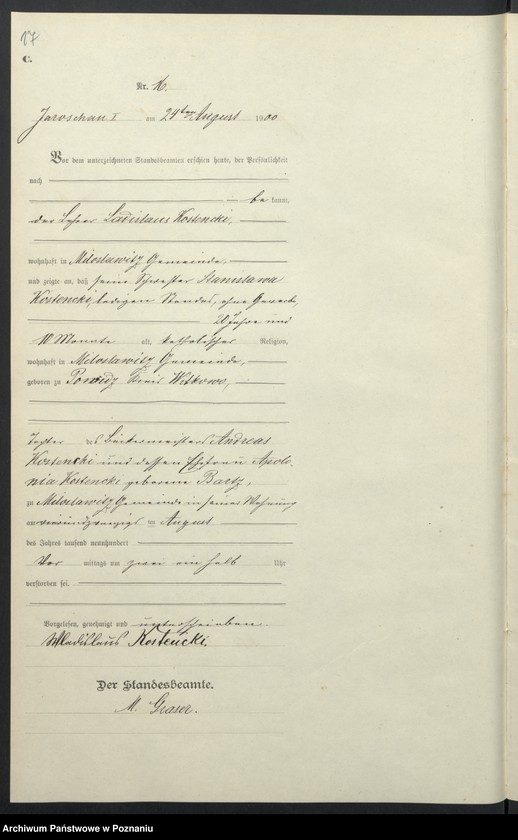 17
C.
Nr. 16.
Jaroschau I am 24ten August 1900
Vor dem unterzeichneten Standesbeamten erschien heute, der Persönlichkeit
nach
be kannt,
der Lehrer Ladislaus Kostencki,
wohnhaft in Miloslawitz Gemeinde,
und zeigte an, daß seine Schwester Stanislawa
Kostencki, ledigen Standes, ohne Gewerbe,
20 Jahre und
10 Monate alt, katholischer Religion,
wohnhaft in Miloslawitz Gemeinde,
geboren zu Powidz Kreis Witkowo,
Tochter des Bäckermeisters Andreas
Kostencki und dessen Ehefrau Apolo-
nia Kostencki geborene Bartz,
zu Miloslawitz Gemeinde in seiner Wohnung
am vierundzwanzigsten August
des Jahres tausend neunhundert
Vor mittags um zwei ein halb Uhr
verstorben sei.
Vorgelesen, genehmigt und unterschrieben.
Wladislaus Kostencki.
Der Standesbeamte.
M. Graser.
Archiwum Państwowe w Poznaniu